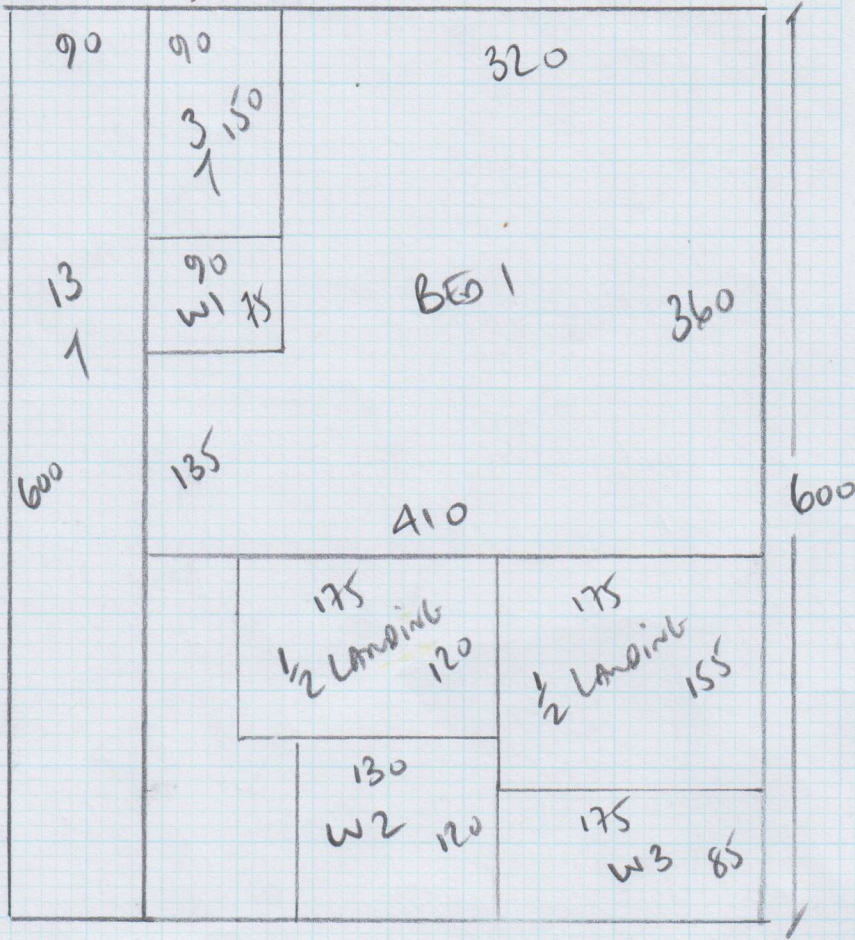 90
90
320
3 150
1
13
1
90
W1 75
BED 1
360
135
600
600
410
175
1/2 LANDING
120
175
1/2 LANDING
155
130
W2 120
175
W3 85